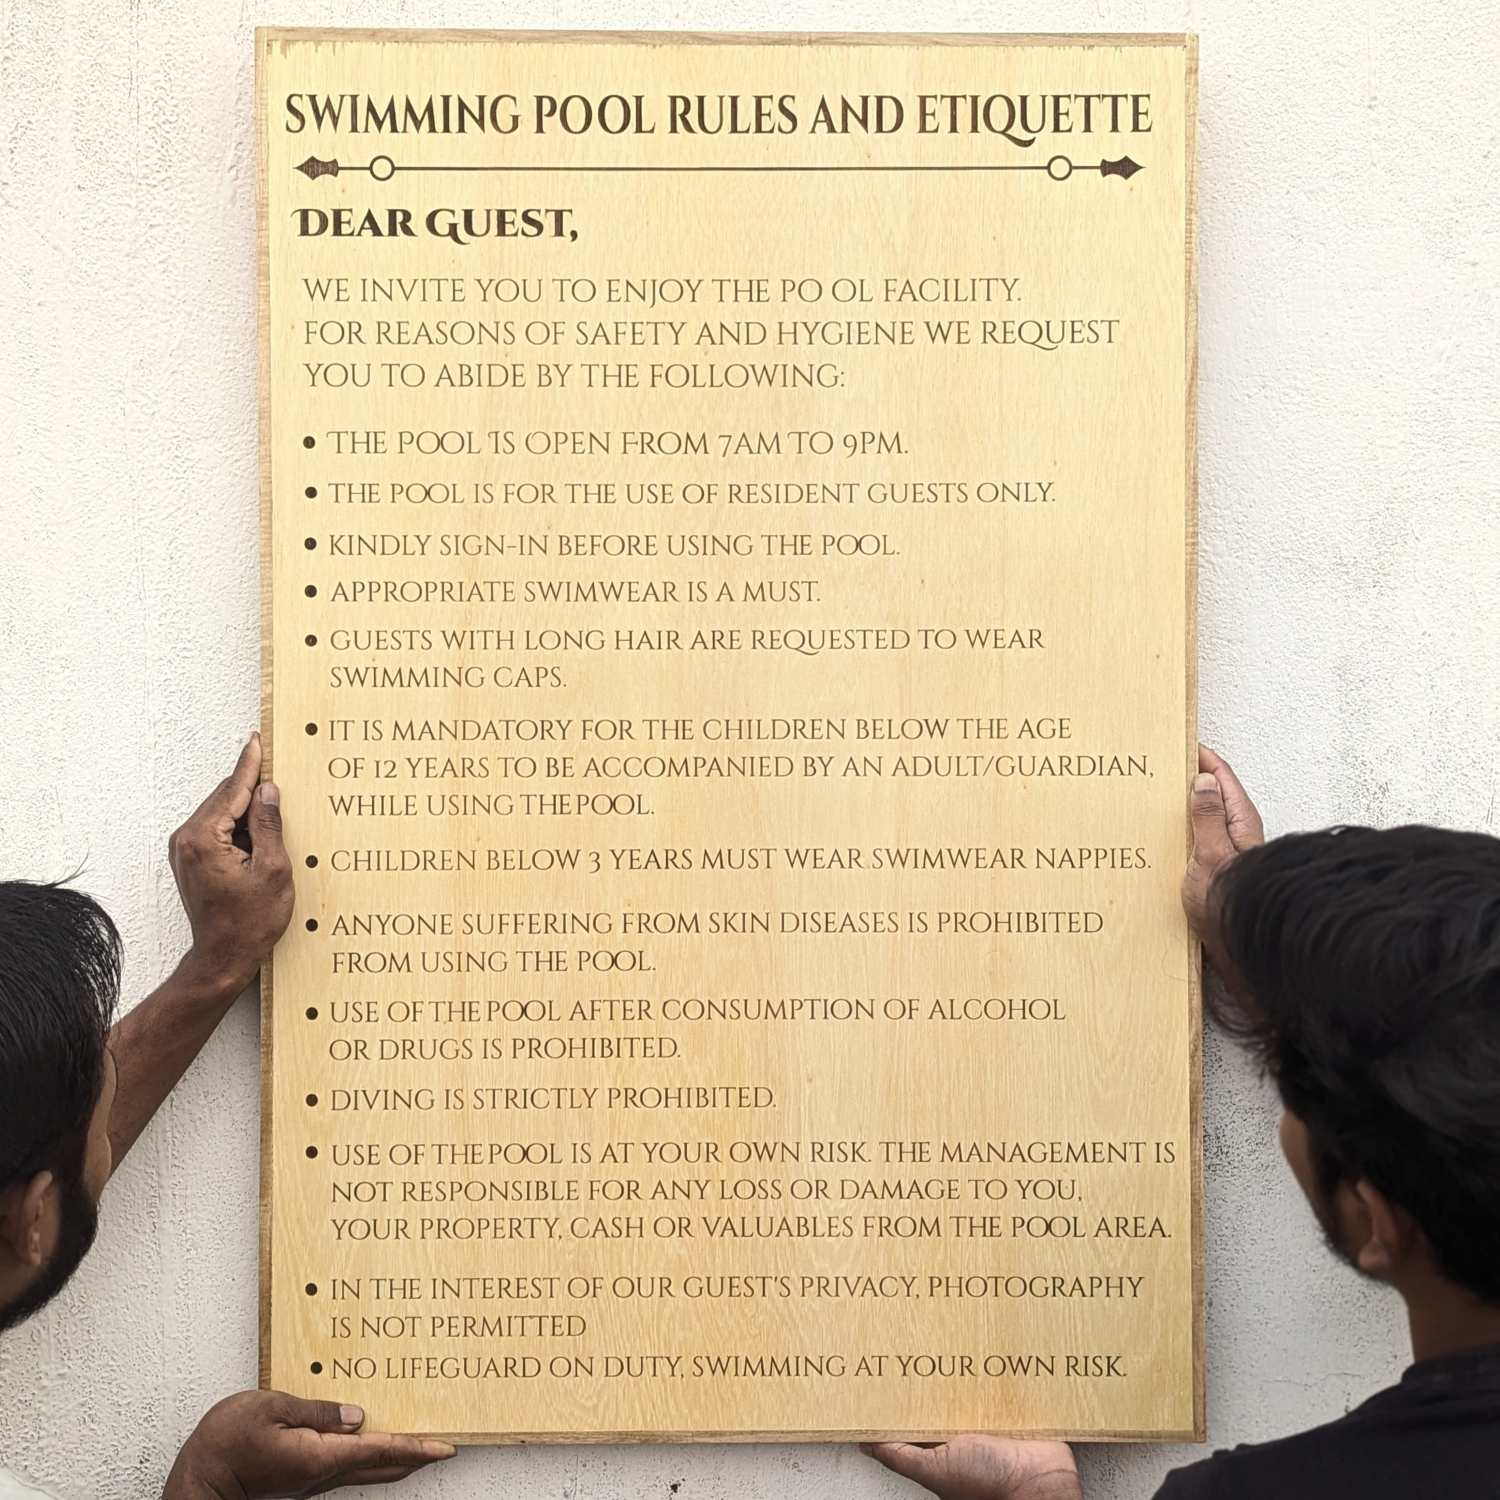 SWIMMING POOL RULES AND ETIQUETTE
DEAR GUEST,
WE INVITE YOU TO ENJOY THE PO OL FACILITY.
FOR REASONS OF SAFETY AND HYGIENE WE REQUEST
YOU TO ABIDE BY THE FOLLOWING:
• THE POOL IS OPEN FROM 7AM TO 9PM.
• THE POOL IS FOR THE USE OF RESIDENT GUESTS ONLY.
• KINDLY SIGN-IN BEFORE USING THE POOL.
• APPROPRIATE SWIMWEAR IS A MUST.
• GUESTS WITH LONG HAIR ARE REQUESTED TO WEAR
SWIMMING CAPS.
• IT IS MANDATORY FOR THE CHILDREN BELOW THE AGE
OF 12 YEARS TO BE ACCOMPANIED BY AN ADULT/GUARDIAN,
WHILE USING THE POOL.
• CHILDREN BELOW 3 YEARS MUST WEAR SWIMWEAR NAPPIES.
• ANYONE SUFFERING FROM SKIN DISEASES IS PROHIBITED
FROM USING THE POOL.
• USE OF THE POOL AFTER CONSUMPTION OF ALCOHOL
OR DRUGS IS PROHIBITED.
• DIVING IS STRICTLY PROHIBITED.
• USE OF THE POOL IS AT YOUR OWN RISK. THE MANAGEMENT IS
NOT RESPONSIBLE FOR ANY LOSS OR DAMAGE TO YOU,
YOUR PROPERTY, CASH OR VALUABLES FROM THE POOL AREA.
• IN THE INTEREST OF OUR GUEST'S PRIVACY, PHOTOGRAPHY
IS NOT PERMITTED
• NO LIFEGUARD ON DUTY, SWIMMING AT YOUR OWN RISK.